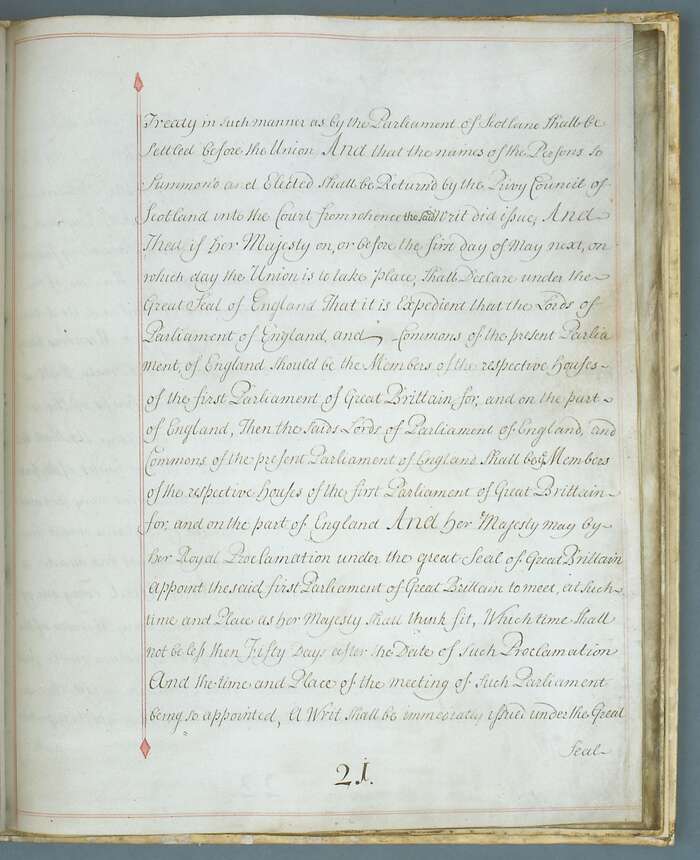 Treaty in such manner as by the Parliament of Scotland shall be
settled before the Union And that the names of the Persons so
Summon'd and Elected shall be Return'd by the Privy Council of
Scotland into the Court from whence the said Writ did issue, And
That, if her Majesty on, or before the first day of May next, on
which day the Union is to take place, shall Declare under the
Great Seal of England That it is Expedient that the Lords of
Parliament of England, and Commons of the present Parlia
ment, of England should be the Members of the respective Houses
of the first Parliament, of Great Brittain, for, and on the part
of England, Then the saids Lords of Parliament of England, and
Commons of the present Parliament of England shall be ye Members
of the respective houses of the first Parliament of Great Brittain
for, and on the part of England And her Majesty may by
her Royal Proclamation under the great Seal of Great Brittain
appoint the said first Parliament of Great Brittain to meet, at such
time and Place as her Majesty shall think fit, Which time shall
not be less then Fifty Days after the Date of such Proclamation
And the time and Place of the meeting of such Parliament
being so appointed, A Writ shall be immediatly issued under the Great
Seal
21.